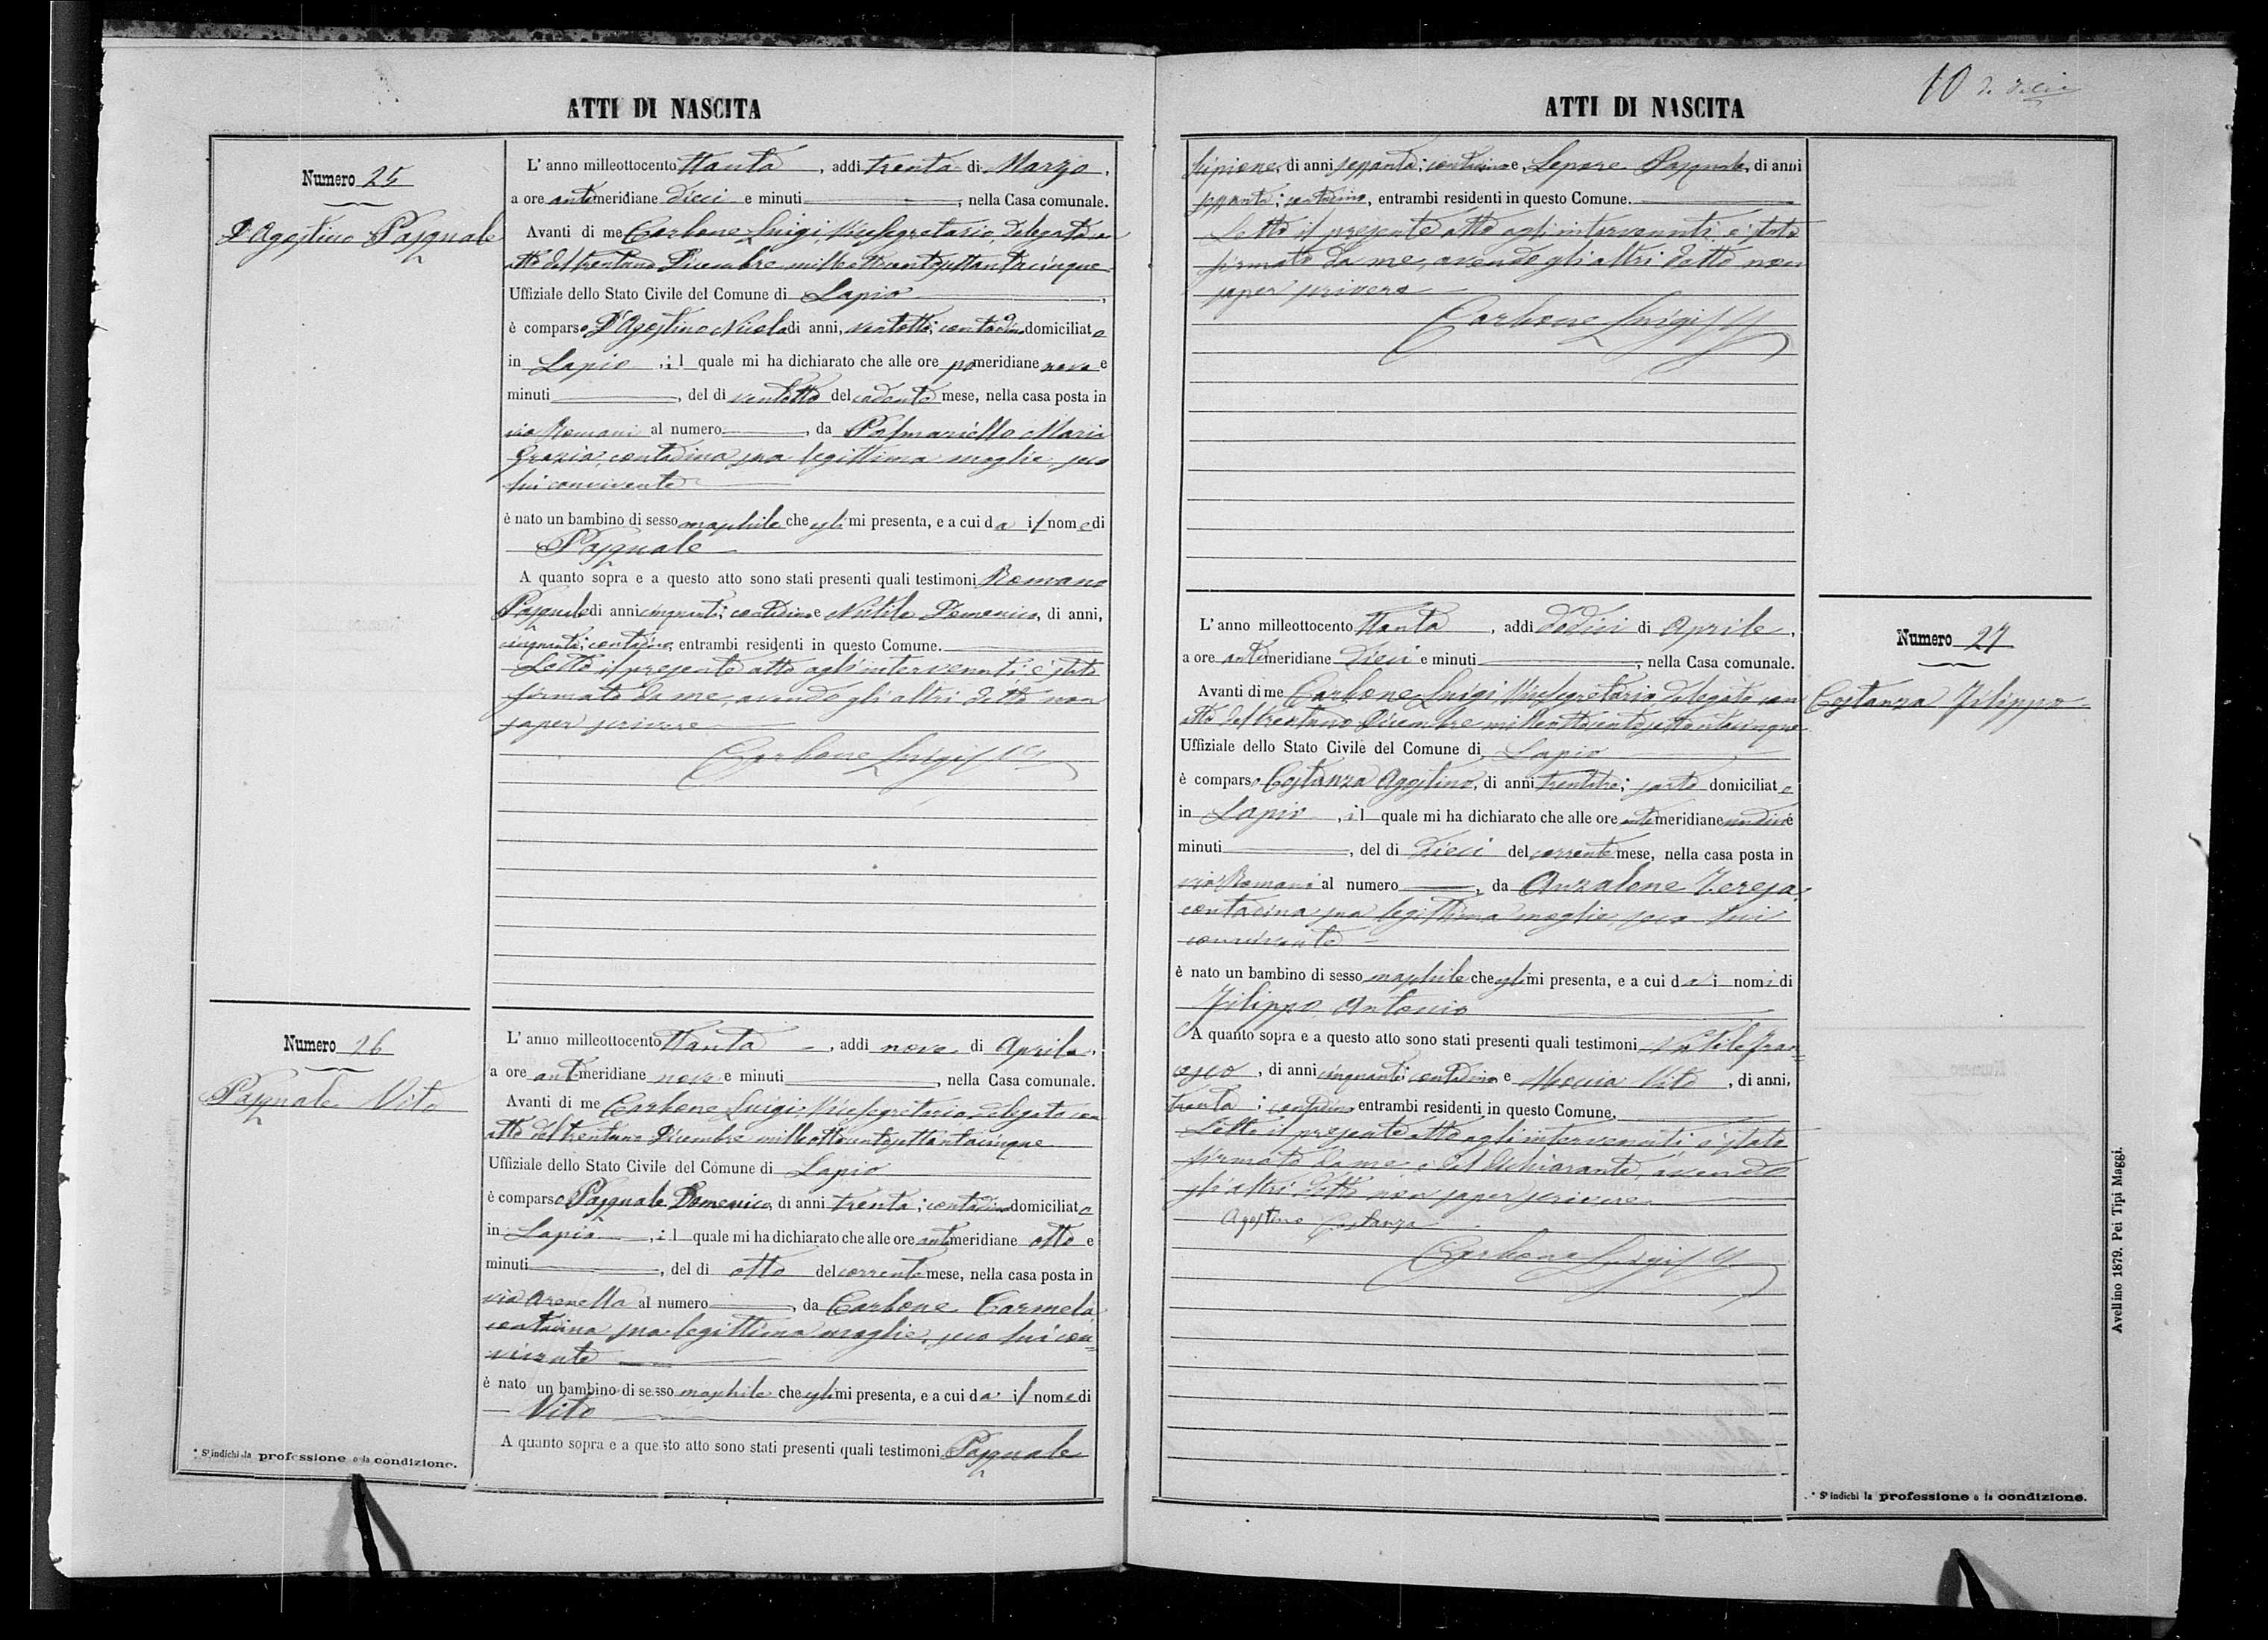 ATTI DI NASCITA
Numero 25
D'Agostino Pasquale
L'anno milleottocento ttanta, addì trenta di Marzo,
a ore antimeridiane dieci e minuti, nella Casa comunale.
Avanti di me Carbone Luigi, Vicesegretario, delegato
atto del trentuno Dicembre milleottocentosettantacinque
Uffiziale dello Stato Civile del Comune di Lapio,
è comparso D'Agostino Nicola di anni, ventotto; contadino domiciliato
in Lapio, il quale mi ha dichiarato che alle ore pomeridiane nove e
minuti, del dì ventotto del cadente mese, nella casa posta in
via Romani al numero, da Polmariello Maria
Grazia, contadina sua legittima moglie, seco
lui convivente
è nato un bambino di sesso maschile che egli mi presenta, e a cui dà il nome di
Pasquale
A quanto sopra e a questo atto sono stati presenti quali testimoni Romano
Pasquale di anni cinquanta; contadino e Nutile Domenico, di anni,
cinquanta; contadino, entrambi residenti in questo Comune.
Letto il presente atto agl'intervenuti, è stato
firmato da me, avendo gli altri detto non
saper scrivere
Carbone Luigi
Numero 26
Pasquale Vito
L'anno milleottocento ttanta, addì nove di Aprile,
a ore antimeridiane nove e minuti, nella Casa comunale.
Avanti di me Carbone Luigi, Vicesegretario, delegato con
atto del trentuno Dicembre milleottocentosettantacinque
Uffiziale dello Stato Civile del Comune di Lapio
è comparso Pasquale Domenico, di anni trenta; contadino domiciliato
in Lapio, il quale mi ha dichiarato che alle ore antimeridiane otto e
minuti, del dì otto del corrente mese, nella casa posta in
via Arenella al numero, da Carbone Carmela
contadina sua legittima moglie, seco lui con=
vivente
è nato un bambino di sesso maschile che egli mi presenta, e a cui dà il nome di
Vito
A quanto sopra e a questo atto sono stati presenti quali testimoni Pasquale
* S'indichi la professione o la condizione.
10
ATTI DI NASCITA
Scipione, di anni sessanta; contadino e, Lepore Pasquale, di anni
sessanta; contadino, entrambi residenti in questo Comune.
Letto il presente atto agl'intervenuti, è stato
firmato da me, avendo gli altri detto non
saper scrivere
Carbone Luigi
Numero 27
Costanza Filippo
L'anno milleottocento ttanta, addì dodici di Aprile,
a ore antimeridiane dieci e minuti, nella Casa comunale.
Avanti di me Carbone Luigi, Vicesegretario delegato con
atto del trentuno Dicembre milleottocentosettantacinque
Uffiziale dello Stato Civile del Comune di Lapio
è comparso Costanza Agostino, di anni trentatre; sarto domiciliato
in Lapio, il quale mi ha dichiarato che alle ore antimeridiane undici e
minuti, del dì dieci del corrente mese, nella casa posta in
via Romani al numero, da Anzalone Teresa,
contadina sua legittima moglie, seco lui
convivente
è nato un bambino di sesso maschile che egli mi presenta, e a cui dà i nomi di
Filippo Antonio
A quanto sopra e a questo atto sono stati presenti quali testimoni Nutile Fran=
cesco, di anni cinquanta; contadino e Moccia Vito, di anni,
trenta; contadino entrambi residenti in questo Comune.
Letto il presente atto agl'intervenuti, è stato
firmato da me e dal dichiarante, avendo
gli altri detto non saper scrivere
Agostino Costanza
Carbone Luigi
* S'indichi la professione o la condizione.
Avellino 1879. Pei Tipi Maggi.